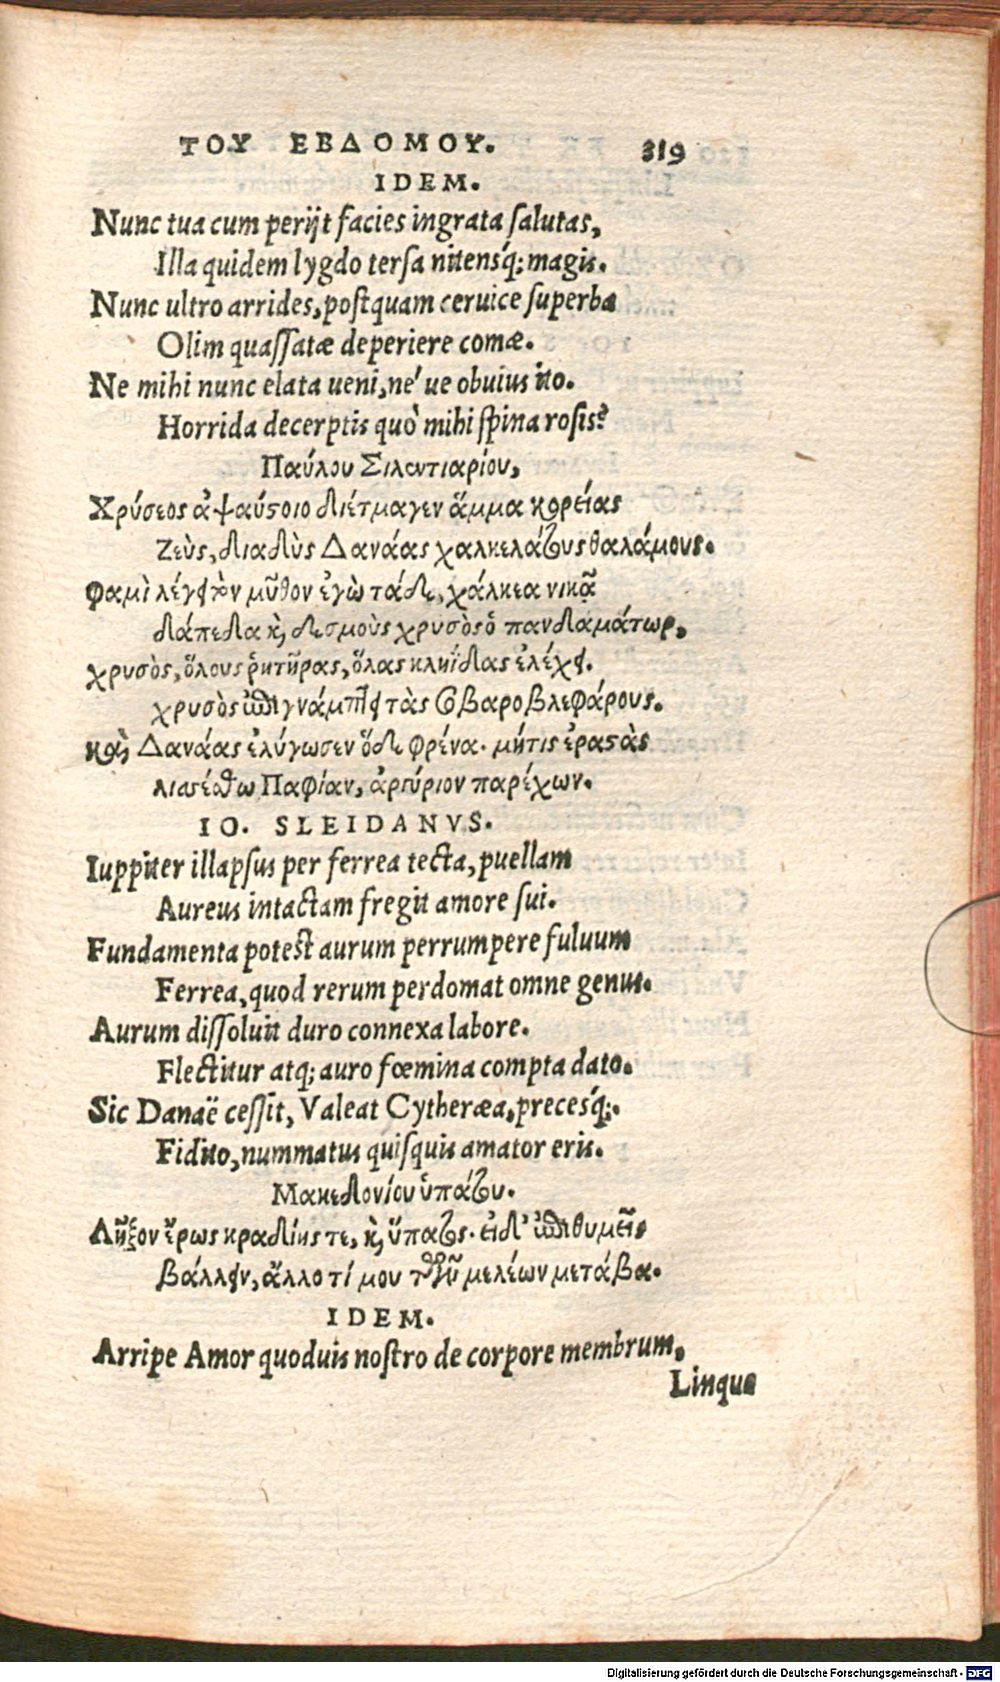 ΤΟΥ ΕΒΔΟΜΟΥ. 319
IDEM.
Nunc tua cum perijt facies ingrata salutas,
Illa quidem lygdo tersa nitensq́; magis.
Nunc ultro arrides, postquam ceruice superba
Olim quassatæ deperiere comæ.
Ne mihi nunc elata ueni, ne´ ue obuius ito.
Horrida decerptis quò mihi spina rosis?
Παύλου Σιλεντιαρίου,
Χρύσεος ἀψαύστοιο διέτμαγεν ἅμμα κορείας
Ζεὺς, διαδὺς Δανάας χαλκελάτους θαλάμους.
φαμὶ λέγειν τὸν μῦθον ἐγὼ τάδε, χάλκεα νικᾷ
δάπεδα καὶ δεσμοὺς χρυσὸς ὁ πανδαμάτωρ,
χρυσὸς, ὅλους ῥητῆρας, ὅλας κληΐδας ἐλέχει.
χρυσὸς ἐπιγνάμπτει τὰς σοβαροβλεφάρους.
καὶ Δανάας ἐλύγωσεν ὅδε φρένα. μήτις ἐραστὰς
λισσέσθω Παφίαν, ἀργύριον παρέχων.
IO. SLEIDANVS.
Iuppiter illapsus per ferrea tecta, puellam
Aureus intactam fregit amore sui.
Fundamenta potest aurum perrumpere fuluum
Ferrea, quod rerum perdomat omne genus.
Aurum dissoluit duro connexa labore.
Flectitur atq; auro fœmina compta dato.
Sic Danaë cessit, Valeat Cytheræa, precesq́;.
Fidito, nummatus quisquis amator eris.
Μακεδονίου ὑπάτου.
Λῆξον ἔρως κραδίης τε, καὶ ὕπατος. εἰ δ' ἐπιθυμεῖς
βάλλειν, ἄλλο τί μου τῶν μελέων μετάβα.
IDEM.
Arripe Amor quoduis nostro de corpore membrum,
Linque